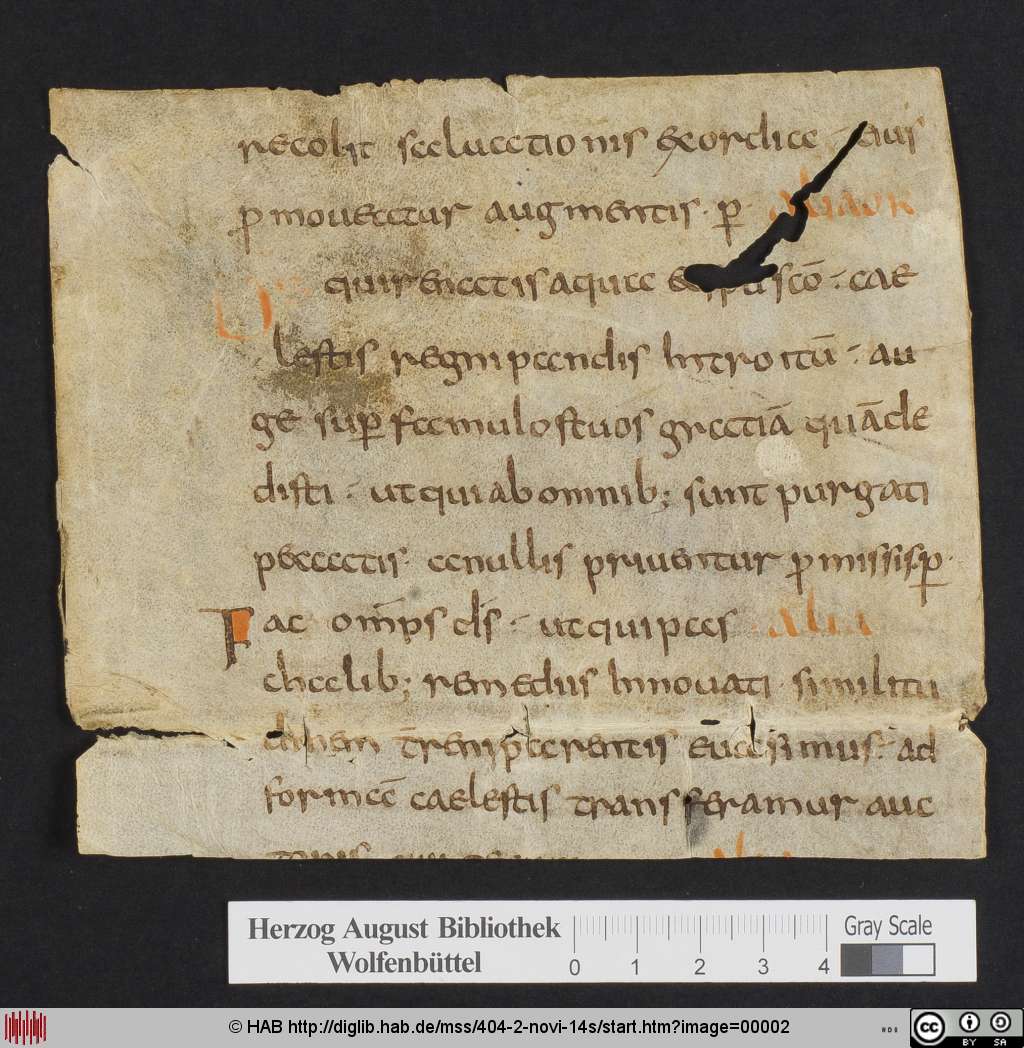 recolit saluationis exordia · eius
p̄moueatur augmentis · p̄ · aliaor
D̄s qui renatis aqua et sp̄u sc̄o · cae
lestis regni pandis introitū · au
ge sup̄ famulos tuos gratiā quā de
disti · ut qui ab omnib; sunt purgati
peccatis · a nullis priuentur p̄missis · p̄ ·
Fac om̄ps d̄s · ut qui pas alia
chalib; remediis innouati · similitu
dinem t̄reni parentis euasimus · ad
formā caelestis transferamur auc
toris
Herzog August Bibliothek
Wolfenbüttel
0 1 2 3 4
Gray Scale
© HAB http://diglib.hab.de/mss/404-2-novi-14s/start.htm?image=00002
cc BY SA